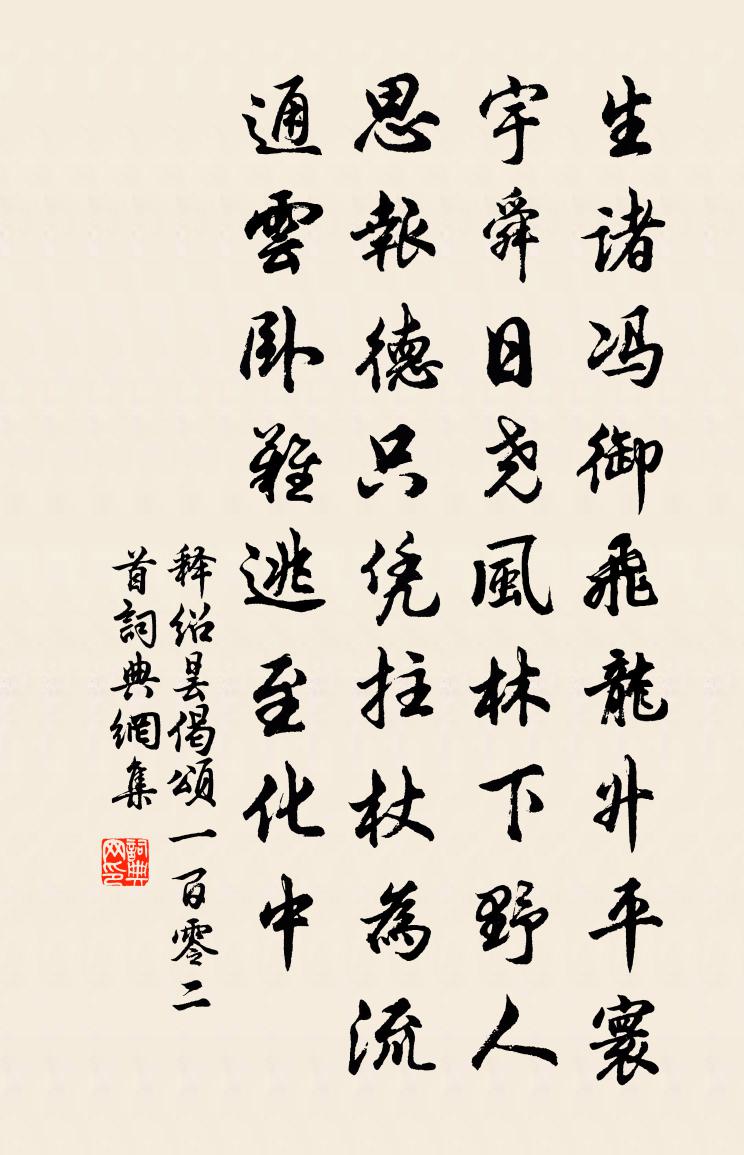 生诸冯御飛龍升平寰
宇舜日尧風林下野人
思報德只凭拄杖為流
通雲卧難逃至化中
释绍昙偈頌一百零二
首詞典網集
詞典
网印